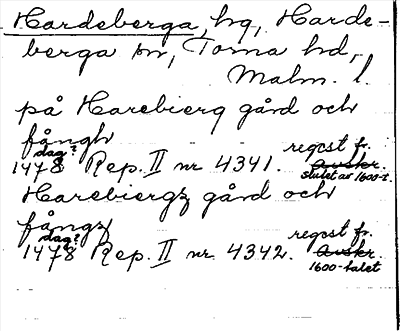 Hardeberga, hg, Harde-
berga sn, Torna hd,
Malm. l.
på Harebierg gård och
fångh
dag? regest fr.
1478 Rep. II nr 4341. Avskr.
slutet av 1600-t.
Harebiergz gård och
fångz
dag? regest fr.
1478 Rep. II nr 4342. Avskr.
1600-talet